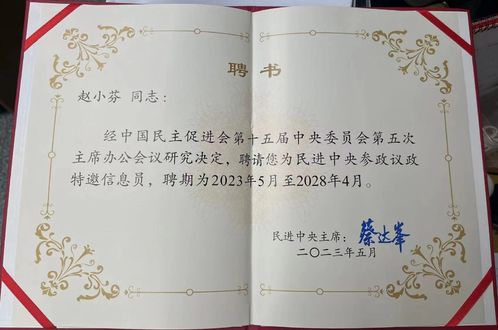 聘书
赵小芬 同志：
经中国民主促进会第十五届中央委员会第五次
主席办公会议研究决定，聘请您为民进中央参政议政
特邀信息员，聘期为2023年5月至2028年4月。
民进中央主席：蔡达峰
二〇二三年五月